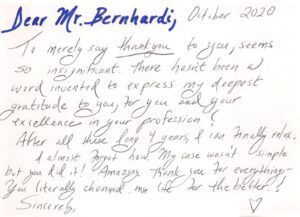 Dear Mr. Bernhardi, October 2020
To merely say thankyou to you, seems
so insignificant. There hasn't been a
word invented to express my deepest
gratitude to you, for you and your
excellence in your profession!
After all these long 4 years, I can finally relax;
I almost forgot how. My case wasn't simple
but you did it! Amazing. Thank you for everything-
You literally changed my life for the better!
Sincerely,